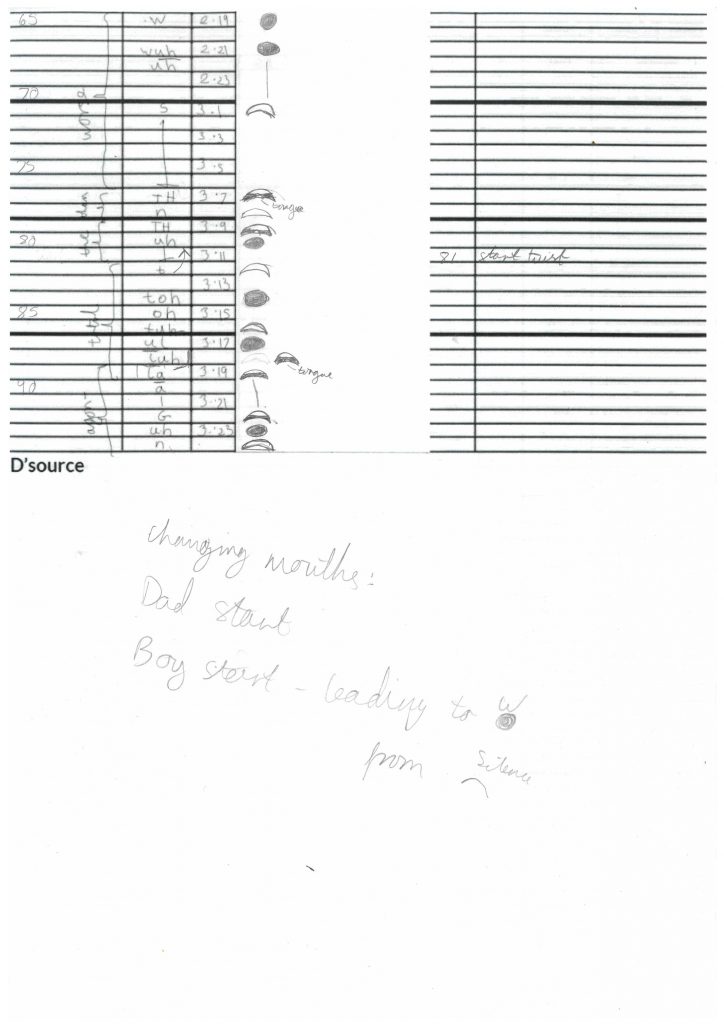 65 W 2.19
wuh 2.21
uh
2.23
70
S 3.1
3.3
75 3.5
TH 3.7
tongue
n
TH 3.9
80 uh
81 start twist
3.11
t
3.13
toh
85 oh 3.15
tuh
ul 3.17
luh
tongue
la 3.19
90 a
3.21
G
uh 3.23
n
the
D'source
Changing mouths:
Dad start
Boy start - leading to W
from Silence